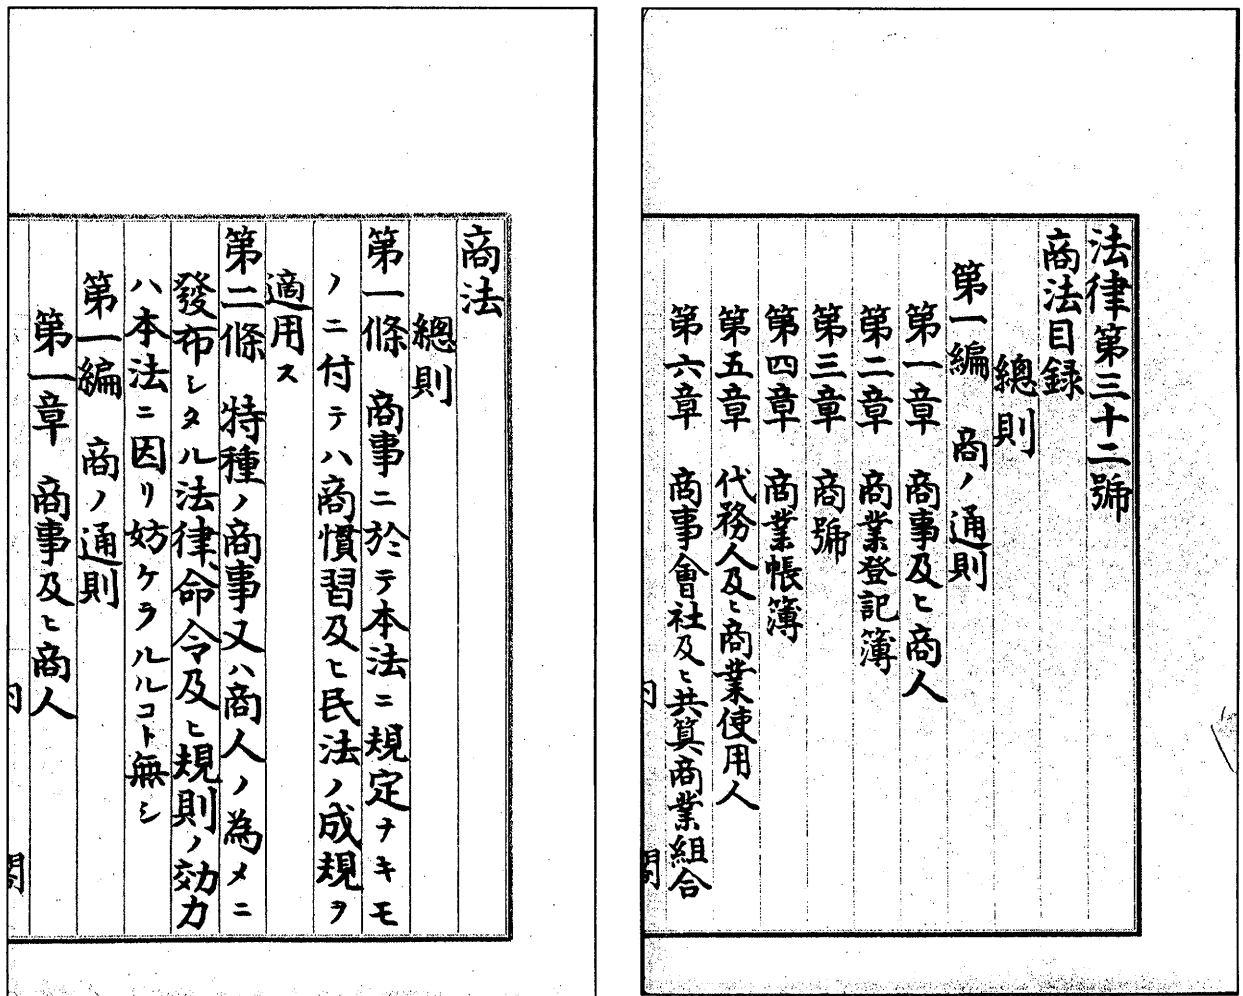 法律第三十二號
商法目録
總則
第一編 商ノ通則
第一章 商事及ヒ商人
第二章 商業登記簿
第三章 商號
第四章 商業帳簿
第五章 代務人及ヒ商業使用人
第六章 商事會社及ヒ共算商業組合
商法
總則
第一條 商事ニ於テ本法ニ規定ナキモ
ノニ付テハ商慣習及ヒ民法ノ成規ヲ
適用ス
第二條 特種ノ商事又ハ商人ノ為メニ
發布シタル法律命令及ヒ規則ノ効力
ハ本法ニ因リ妨ケラルルコト無シ
第一編 商ノ通則
第一章 商事及ヒ商人